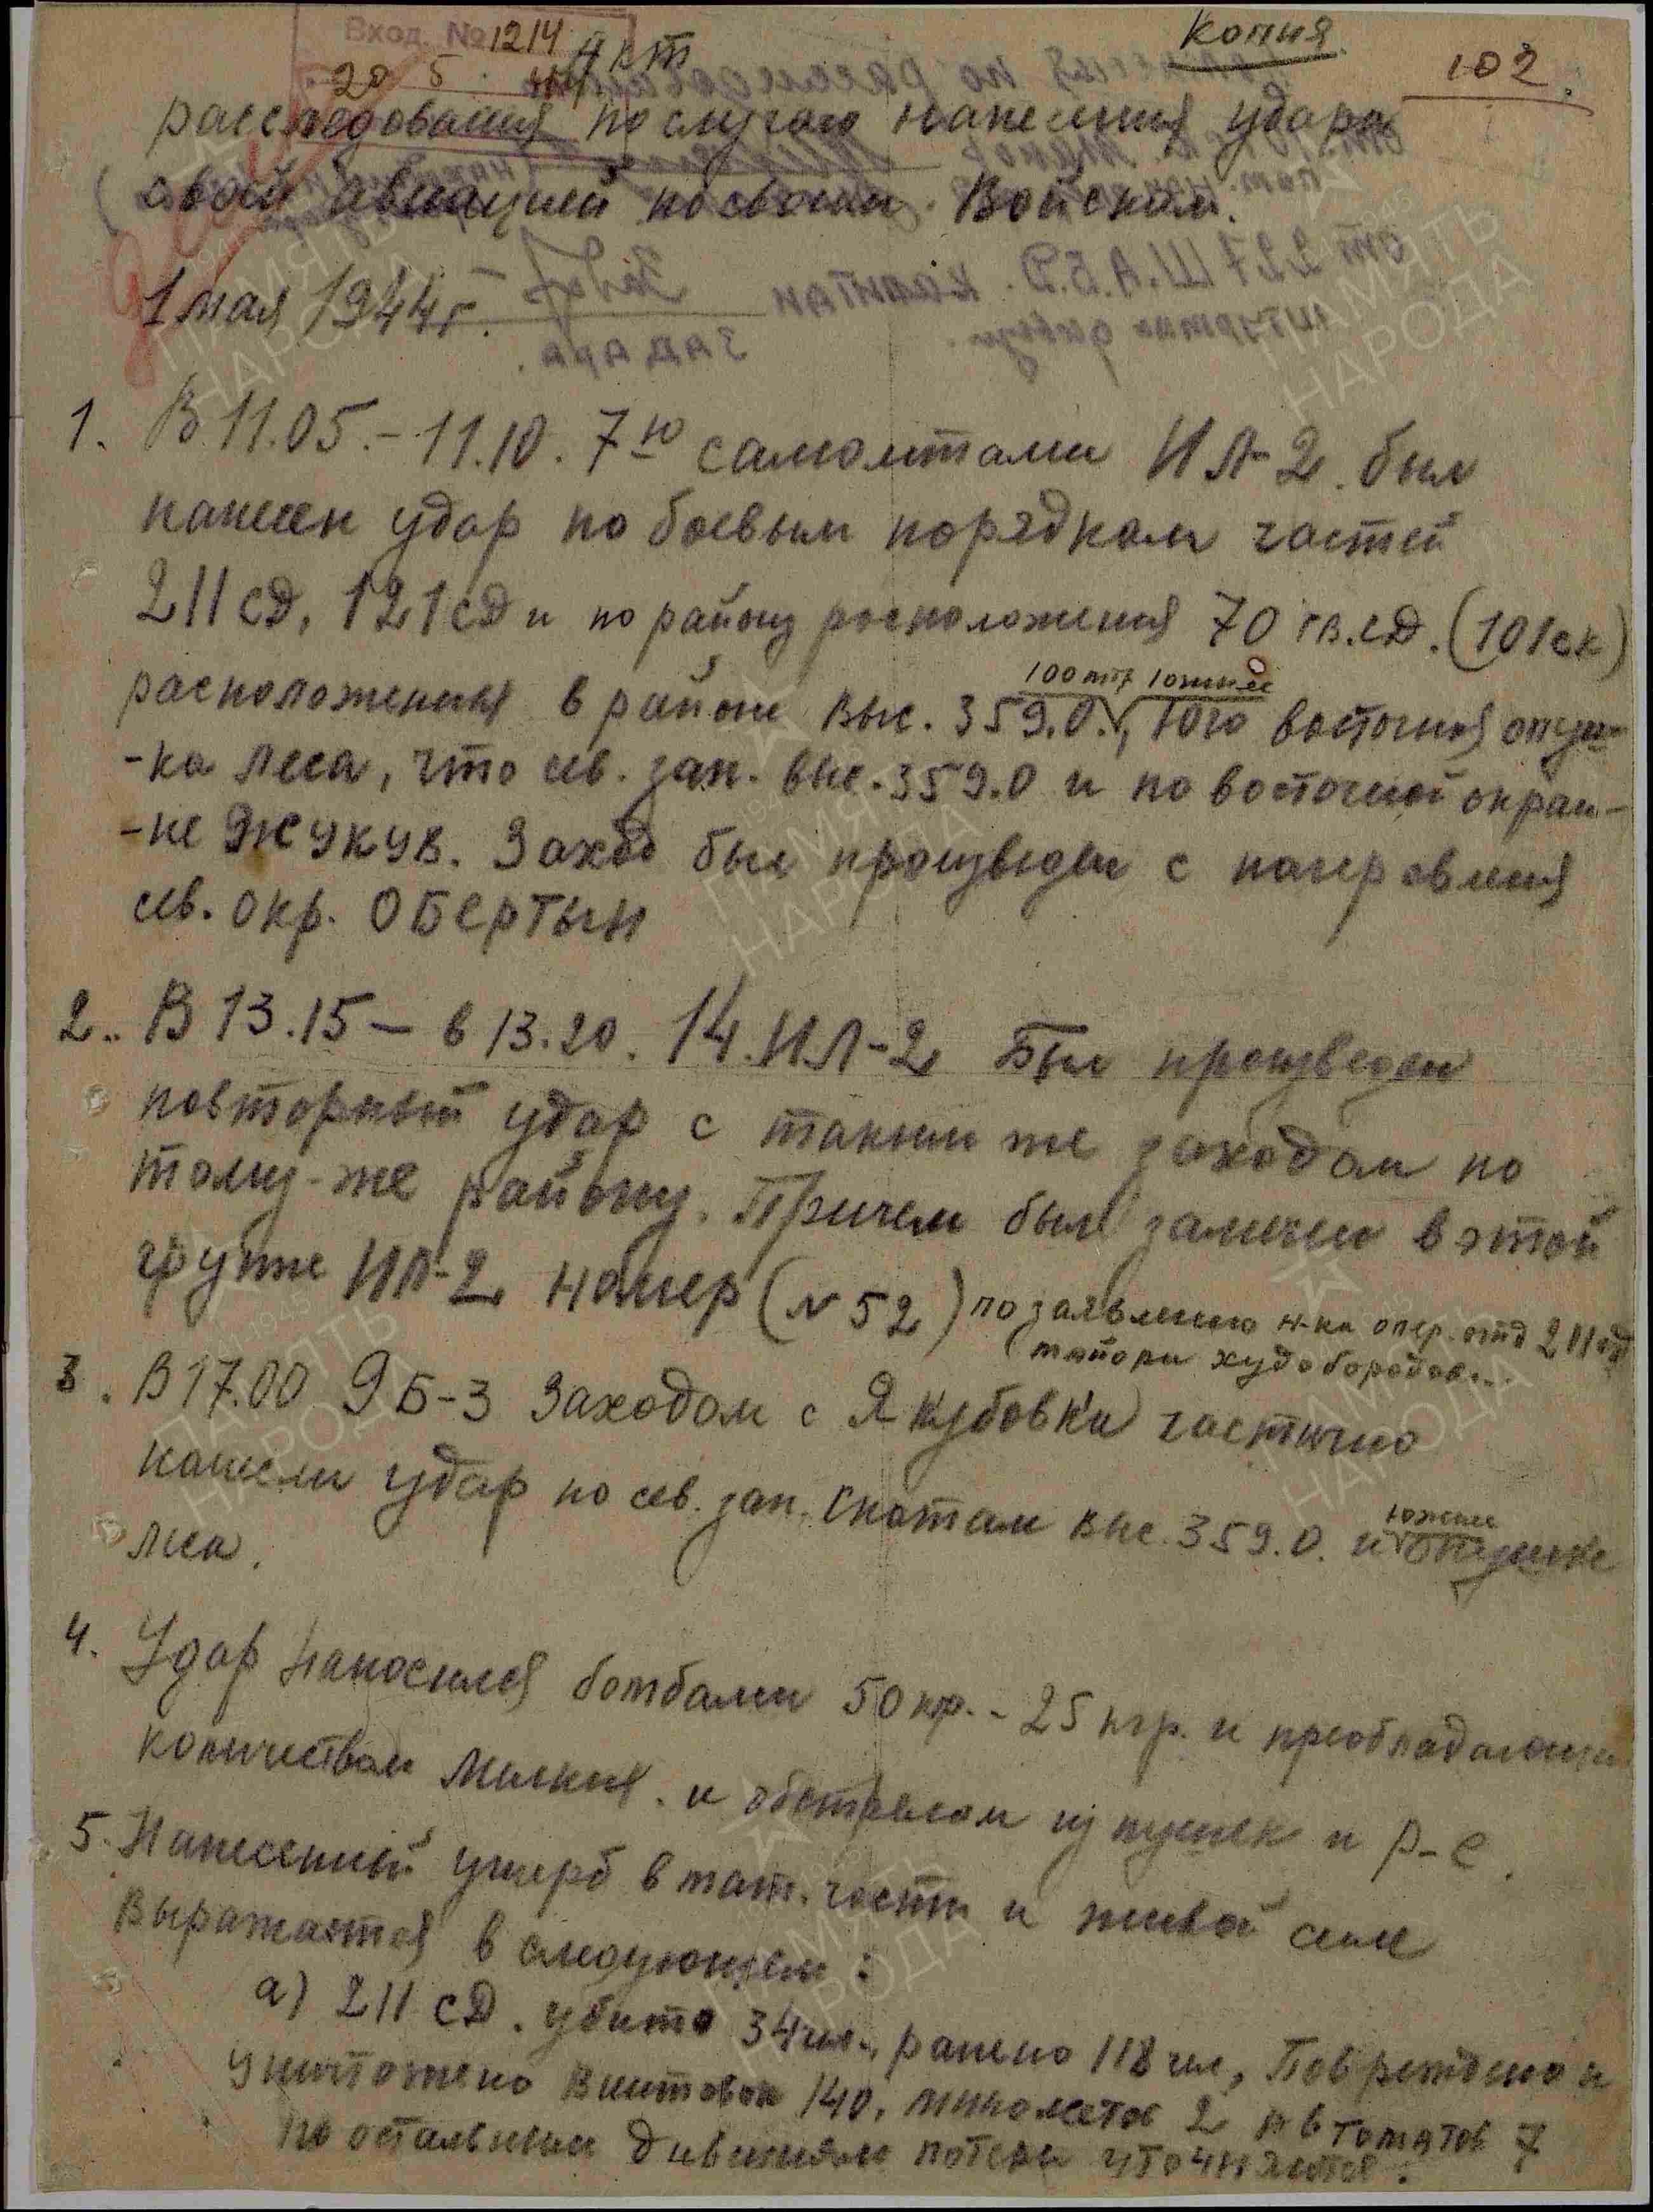 Вход. № 1214
20 5
Копия
102
Акт
расследования по случаю нанесения удара
своей авиацией по своим Войскам.
1 мая 1944 г.
1. В 11.05. – 11.10. 7ю самолетами ИЛ-2 был
нанесен удар по боевым порядкам частей
211 сд, 121 сд и по району расположения 70 гв.сд. (101 ск)
100 мтр южнее
расположения в районе выс. 359.0., Юго восточная опуш-
-ка леса, что сев. зап. выс. 359.0 и по восточной окраи-
-не ЖУКУВ. Заход был произведен с направления
сев. окр. ОБЕРТЫН
2. В 13.15 – в 13.20. 14 ИЛ-2 Был произведен
повторный удар с таким же заходом по
тому-же району. Причем был замечен в этой
группе ИЛ-2 номер (N 52) по заявлению н-ка опер. отд 211 сд
(майора худобородов...
3. В 17.00 9 Б-3 Заходом с Якубовки частично
нанесли удар по сев. зап. Скатам выс. 359.0. и опушке
южнее
леса.
4. Удар наносился бомбами 50 кр. - 25 кгр. и преобладающим
количеством мелких. и обстрелом из пушек и Р-С.
5. Нанесенный ущерб в мат. части и живой силе
выражается в следующем:
а) 211 сд. убито 34 чел., ранено 118 чел, Повреждено и
уничтожено винтовок 140, минометов 2 Автоматов 7
по остальным дивизиям потери уточняются.
от 227 Ш.А.Б.Д. капитан
Задара.
ПАМЯТЬ
НАРОДА